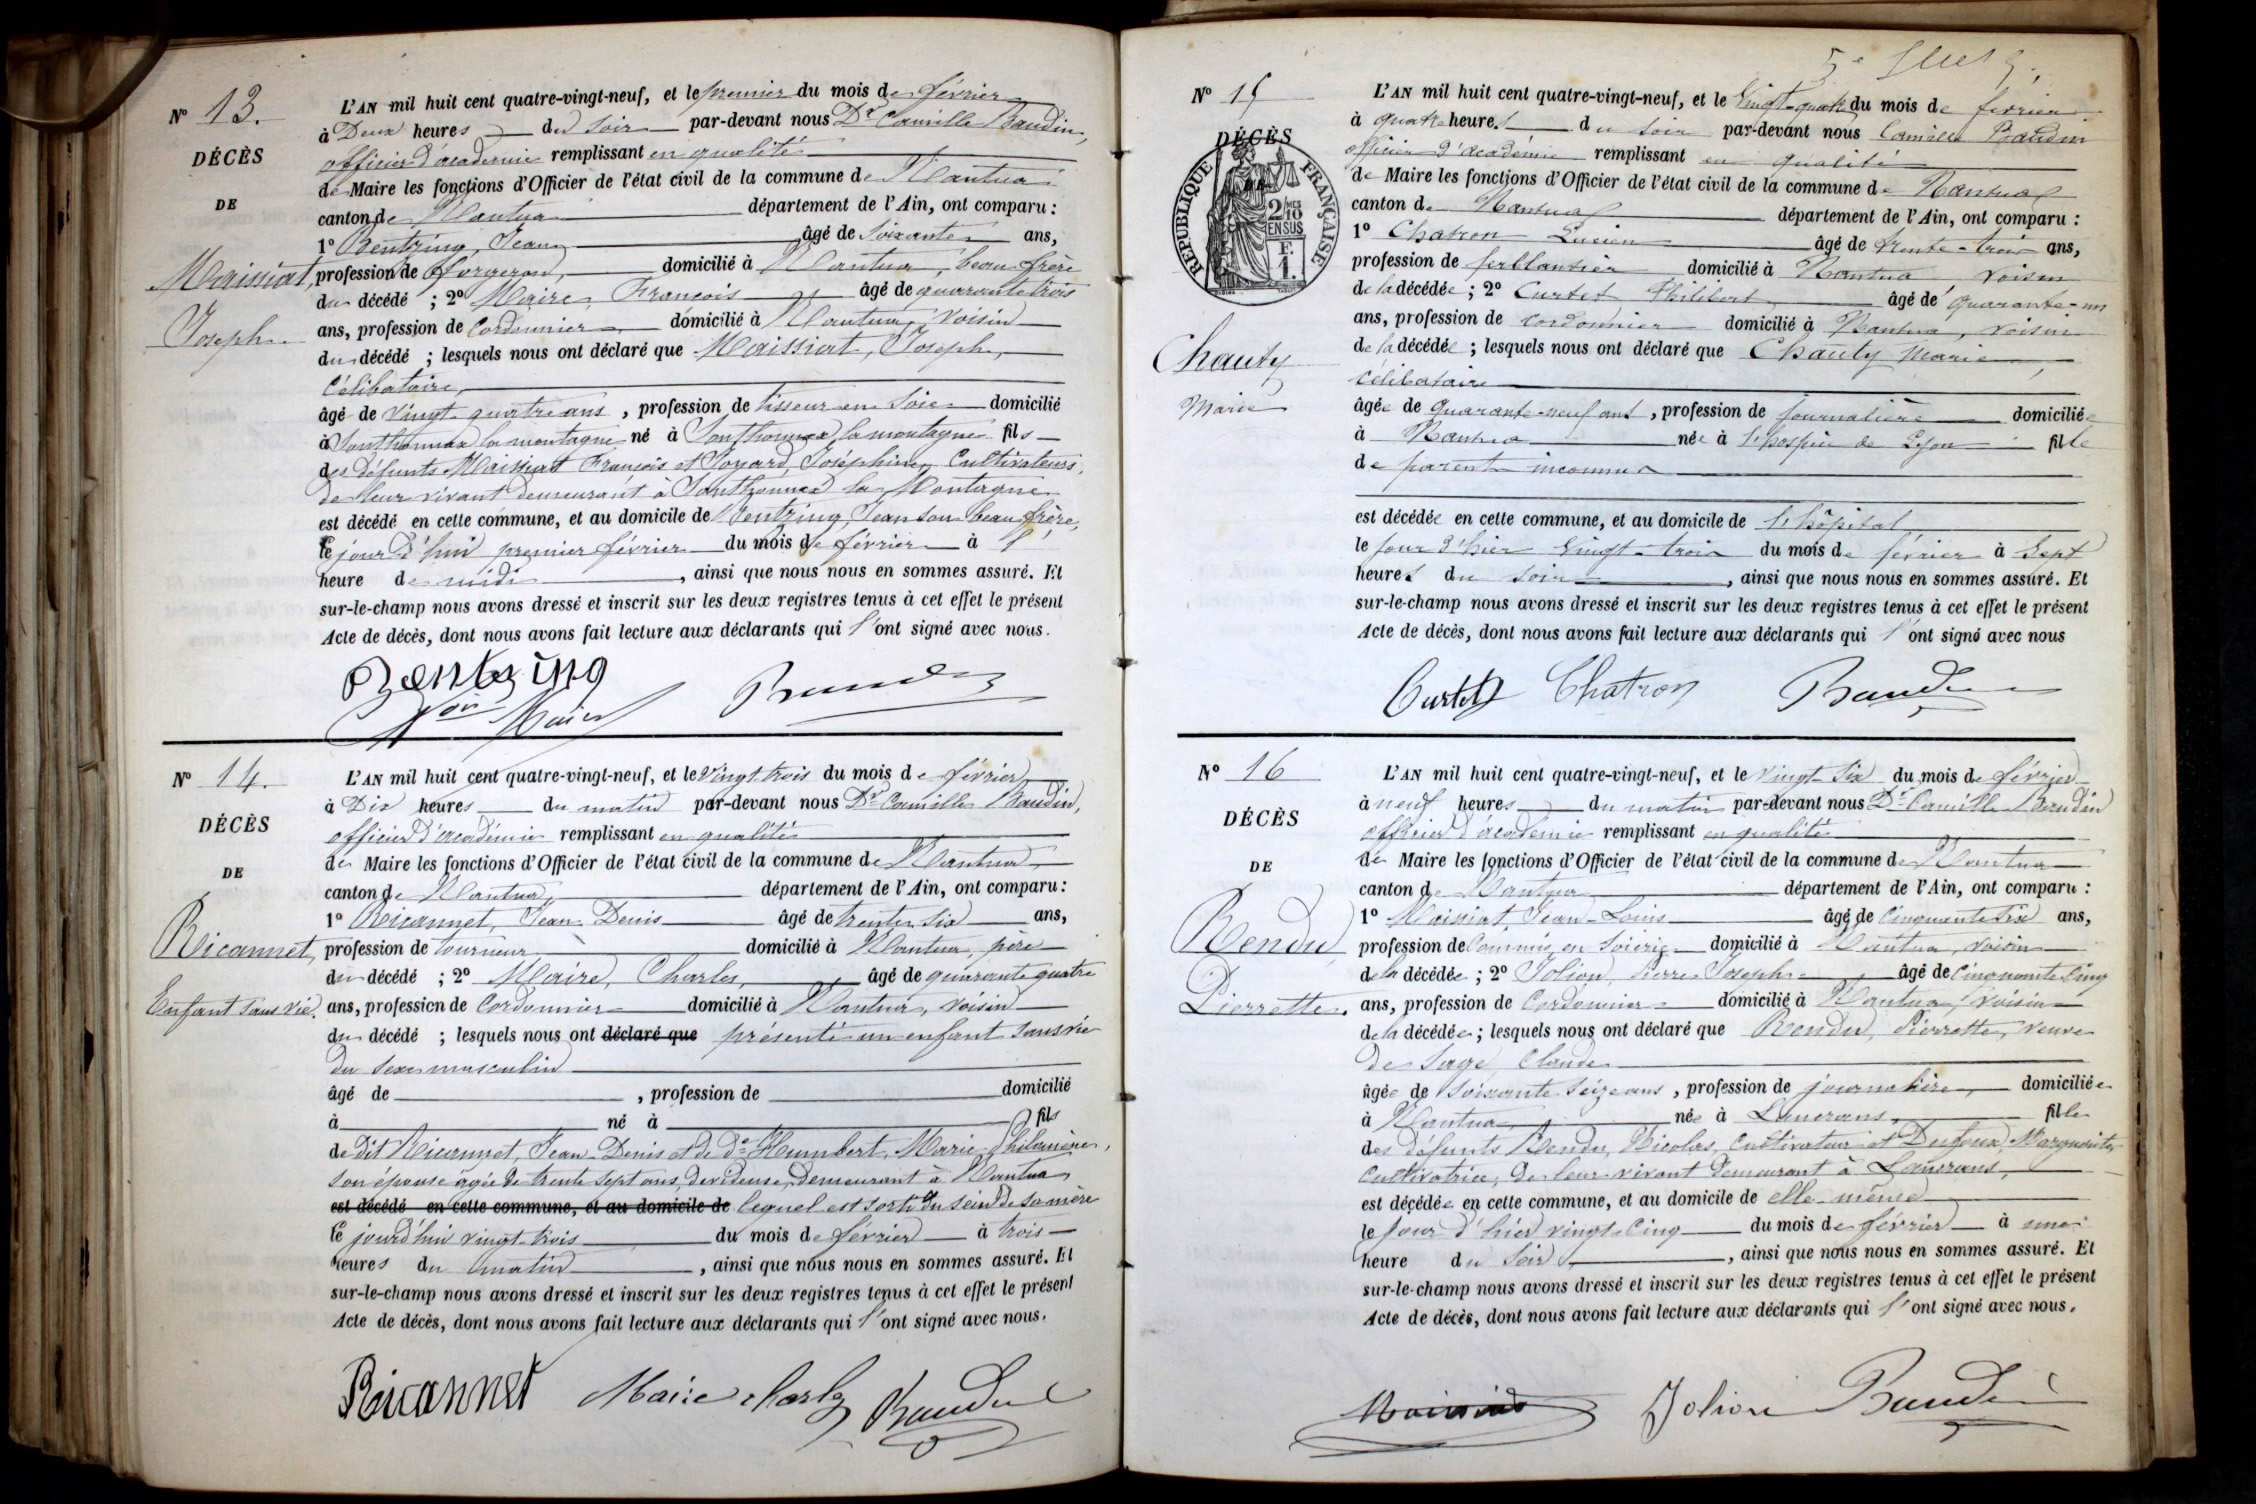 N° 13.
DÉCÈS
DE
Maissiat,
Joseph.
L'AN mil huit cent quatre-vingt-neuf, et le premier du mois de février
à Deux heures du soir par-devant nous Dr Camille Baudin,
officier d'académie remplissant en qualité
de Maire les fonctions d'Officier de l'état civil de la commune de Nantua
canton de Nantua département de l'Ain, ont comparu :
1° Bentzing, Jean, âgé de soixante ans,
profession de forgeron, domicilié à Nantua, beau-frère
du décédé ; 2° Maire, François âgé de quarante trois
ans, profession de Cordonnier domicilié à Nantua, voisin
du décédé ; lesquels nous ont déclaré que Maissiat, Joseph,
célibataire,
âgé de vingt-quatre ans, profession de tisseur en soie domicilié
à Sonthonnax la montagne né à Sonthonnax la montagne fils
des défunts Maissiat François et Joséphine, Cultivateurs,
de leur vivant demeurant à Sonthonnax la Montagne
est décédé en cette commune, et au domicile de Bentzing, Jean son beau-frère,
le jourd'hui premier février du mois de février à
heure de midi, ainsi que nous nous en sommes assuré. Et
sur-le-champ nous avons dressé et inscrit sur les deux registres tenus à cet effet le présent
Acte de décès, dont nous avons fait lecture aux déclarants qui l'ont signé avec nous.
Bentzing
Baudin
N° 14.
DÉCÈS
DE
Ricannet,
Enfant sans vie.
L'AN mil huit cent quatre-vingt-neuf, et le vingt-trois du mois de février
à Dix heures du matin par-devant nous Dr Camille Baudin,
officier d'académie remplissant en qualité
de Maire les fonctions d'Officier de l'état civil de la commune de Nantua
canton de Nantua, département de l'Ain, ont comparu :
1° Ricannet, Jean Denis âgé de trente six ans,
profession de tourneur domicilié à Nantua, père
du décédé ; 2° Maire, Charles, âgé de quarante quatre
ans, profession de Cordonnier domicilié à Nantua, voisin
du décédé ; lesquels nous ont déclaré que présenté un enfant sans vie
du sexe masculin
âgé de , profession de domicilié
à né à fils
de dit Ricannet, Jean Denis et de de Humbert, Marie Philomène,
son épouse âgée de trente sept ans, devideuse, demeurant à Nantua
est décédé en cette commune, et au domicile de lequel est sorti du sein de sa mère
le jourd'hui vingt-trois du mois de février à trois
heures du matin, ainsi que nous nous en sommes assuré. Et
sur-le-champ nous avons dressé et inscrit sur les deux registres tenus à cet effet le présent
Acte de décès, dont nous avons fait lecture aux déclarants qui l'ont signé avec nous.
Ricannet Maire charles Baudin
N° 15
DÉCÈS
RÉPUBLIQUE FRANÇAISE
2/10 MES
EN SUS
F.
1.
Chauty
Marie
L'AN mil huit cent quatre-vingt-neuf, et le Vingt-quatre du mois de février
à quatre heures du soir par-devant nous Camille Baudin
officier d'académie remplissant en qualité
de Maire les fonctions d'Officier de l'état civil de la commune de Nantua
canton de Nantua département de l'Ain, ont comparu :
1° Chatron Lucien âgé de trente-trois ans,
profession de ferblantier domicilié à Nantua voisin
de la décédée ; 2° Curtet Philibert âgé de quarante-un
ans, profession de cordonnier domicilié à Nantua, voisin
de la décédée ; lesquels nous ont déclaré que Chauty Marie,
célibataire
âgée de quarante-neuf ans, profession de journalière domiciliée
à Nantua née à l'hospice de Lyon fille
de parents inconnus
est décédée en cette commune, et au domicile de l'hôpital
le jour d'hier vingt-trois du mois de février à sept
heures du soir, ainsi que nous nous en sommes assuré. Et
sur-le-champ nous avons dressé et inscrit sur les deux registres tenus à cet effet le présent
Acte de décès, dont nous avons fait lecture aux déclarants qui l'ont signé avec nous
Curtet Chatron Baudin
N° 16
DÉCÈS
DE
Rendu,
Pierrette.
L'AN mil huit cent quatre-vingt-neuf, et le vingt-six du mois de février
à neuf heures du matin par-devant nous Dr Camille Baudin
officier d'académie remplissant en qualité
de Maire les fonctions d'Officier de l'état civil de la commune de Nantua
canton de Nantua département de l'Ain, ont comparu :
1° Maissiat, Jean-Louis âgé de Cinquante six ans,
profession de Commis en soierie domicilié à Nantua, voisin
de la décédée ; 2° Jolion, Pierre Joseph, âgé de cinquante cinq
ans, profession de Cordonnier domicilié à Nantua, voisin
de la décédée ; lesquels nous ont déclaré que Rendu, Pierrette, veuve
de Sage, Claude
âgée de soixante seize ans, profession de journalière, domiciliée
à Nantua, née à Lancrans, fille
des défunts Rendu, Nicolas, cultivateur et Dufour, Marguerite,
cultivatrice, de leur vivant demeurant à Lancrans,
est décédée en cette commune, et au domicile de elle-même
le jour d'hier vingt-cinq du mois de février à une
heure du soir, ainsi que nous nous en sommes assuré. Et
sur-le-champ nous avons dressé et inscrit sur les deux registres tenus à cet effet le présent
Acte de décès, dont nous avons fait lecture aux déclarants qui l'ont signé avec nous.
Maissiat Jolion Baudin